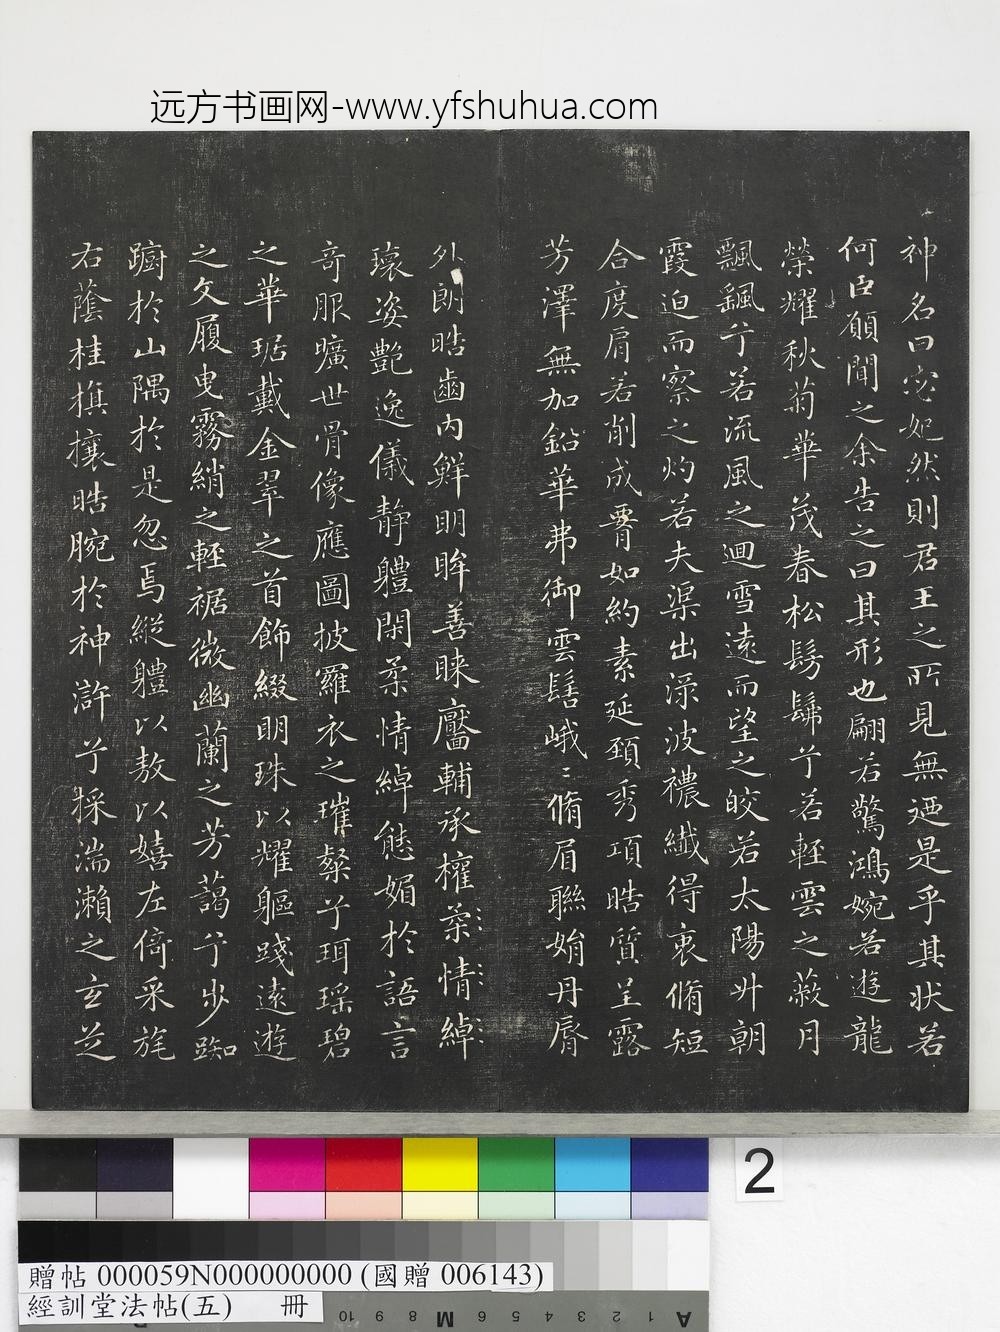 远方书画网-www.yfshuhua.com
神名曰宓妃然則君王之所見無迺是乎其狀若
何臣願聞之余告之曰其形也翩若驚鴻婉若遊龍
榮耀秋菊華茂春松髣髴兮若輕雲之蔽月
飄飖兮若流風之迴雪遠而望之皎若太陽升朝
霞迫而察之灼若夫渠出淥波襛纖得衷脩短
合度肩若削成腰如約素延頸秀項皓質呈露
芳澤無加鉛華弗御雲髻峨〻脩眉聯娟丹脣
外朗皓齒內鮮明眸善睞靨輔承權柔情綽
瓌姿艷逸儀靜體閑柔情綽態媚於語言
奇服曠世骨像應圖披羅衣之璀粲兮珥瑤碧
之華琚戴金翠之首飾綴明珠以耀軀踐遠遊
之文履曳霧綃之輕裾微幽蘭之芳藹兮步踟
躕於山隅於是忽焉縱體以敖以嬉左倚采旄
右蔭桂旗攘皓腕於神滸兮採湍瀨之玄芝
2
贈帖 000059N000000000 (國贈 006143)
經訓堂法帖(五) 冊
10 9 8 M 6 5 4 3 2 1 A